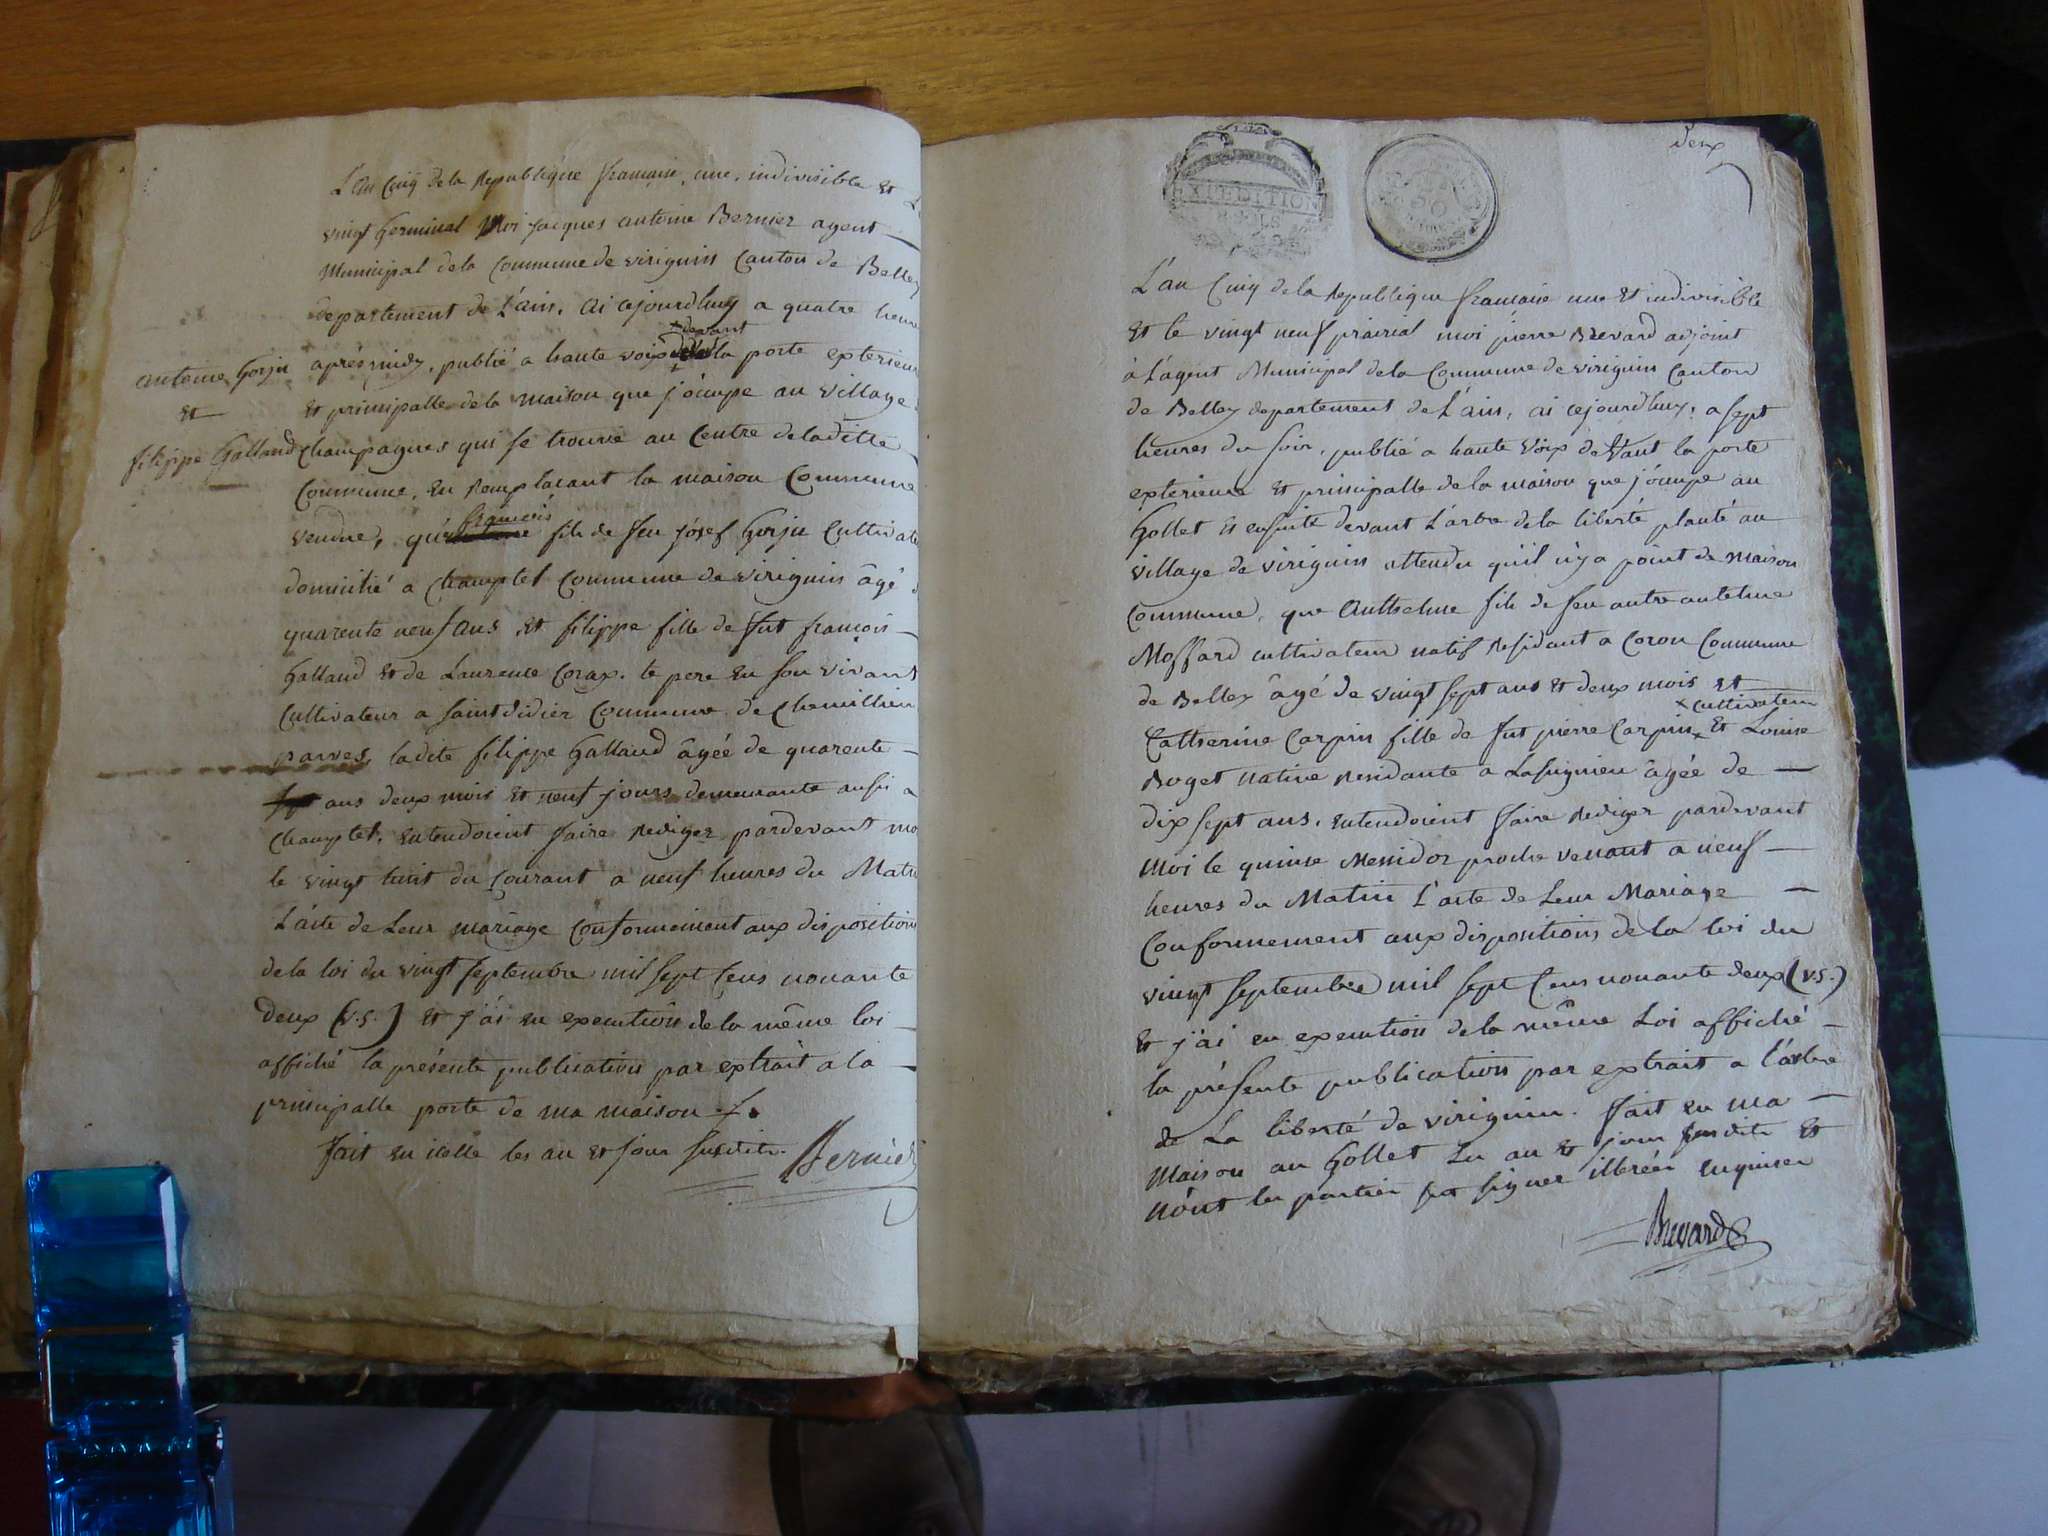 L'an Cinq de la Republique francaise, une, indivisible Et
vingt Germinal Moi jacques antoine Bernier agent
Municipal de la Commune de virignin Canton de Belley
departement de L'ain, ai cejourdhuy a quatre heure
aprésmidy, publié a haute voix devant la porte exterieur
Et principalle de la maison que j'ócupe au village
Champagnes qui se trouve au Centre de laditte
Commune, en Remplacant la maison Commune
vendue, qué francois fils de feu jósef Gorju Cultivate
domicilié a Champtel Commune de virignin âgé d
quarente neuf ans, Et filippe fille de fut francois
Galland Et de Laurence Corax. le pere en son vivant
Cultivateur a saint didier Commune de Chemillieu
parves, ladite filippe Galland âgée de quarente
ans deux mois Et neuf jours demeurante aussi a
Champtel, Entendoient faire Rediger pardevant mo
le vingt huit du Courant a neuf heures du Mati
L'acte de Leur mariage Conformement aux dispositions
de la loi du vingt septembre mil sept Cens nonante
deux (v.s.) Et j'ai en execution de la même loi
affiché la présente publication par extrait a la
principalle porte de ma maison
fait en icelle les an Et jour susdits. Bernier
antoine Gorju
Et
filippe Galland
deux
EXPEDITION
L'an Cinq de la Republique francaise une Et indivisible
Et le vingt neuf prairial moi pierre Brevard adjoint
à L'agent Municipal de la Commune de virignin Canton
de Belley departement de L'ain, ai cejourdhuy, a sept
heures du soir, publié a haute voix devant la porte
exterieure Et principalle de la maison que j'ócupe au
Gollet Et ensuite devant L'arbre de la liberté planté au
village de virignin attendu qu'il n'y a point de maison
Commune, que Anthelme fils de feu autre antelme
Mossard cultivateur natif Residant a Coron Commune
de Belley âgé de vingt sept ans Et deux mois Et
x cultivateur
Catherine Carpin fille de fut pierre Carpin x Et Louise
Roget native Residante a Lassignieu âgée de
dix sept ans. Entendoient faire Rediger pardevant
Moi le quinse Messidor proche venant a neuf
heures du Matin L'acte de Leur Mariage
Conformement aux dispositions de la loi du
vingt septembre mil sept Cens nonante deux (v.s.)
Et j'ai en execution de la même Loi affiché
la présente publication par extrait a l'arbre
de La liberté de virignin. fait en ma
Maison au Gollet Les an Et jour susdits Et
n'ont les parties sçu signer illeréés enquises
Brevard